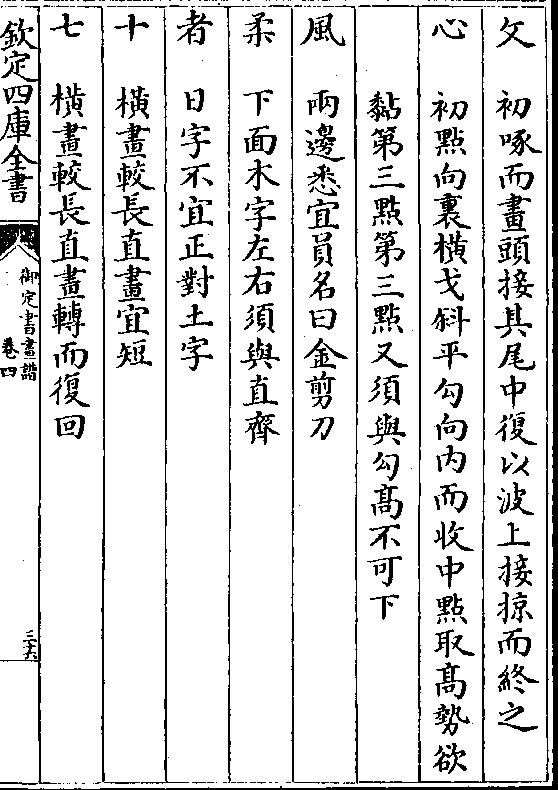 攵　初啄而畫頭接其尾中復以波上接掠而終之
心　初點向裏橫戈斜平勾向内而收中點取髙勢欲
黏第三點第三點又須與勾髙不可下
風　兩邊悉宜員名曰金剪刀
柔　下面木字左右須與直齊
者　日字不宜正對土字
十　橫畫較長直畫宜短
七　橫畫較長直畫轉而復回
欽定四庫全書
御定書畫譜
卷四
三六